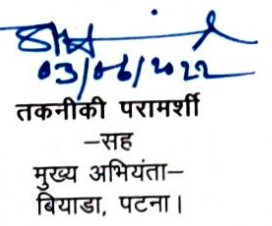 03/06/2022
तकनीकी परामर्शी
–सह
मुख्य अभियंता–
बियाडा, पटना।